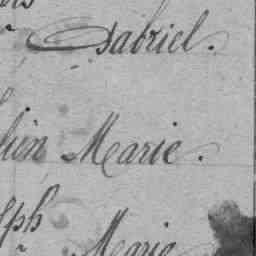 Gabriel.
lien Marie.
lph
Marie